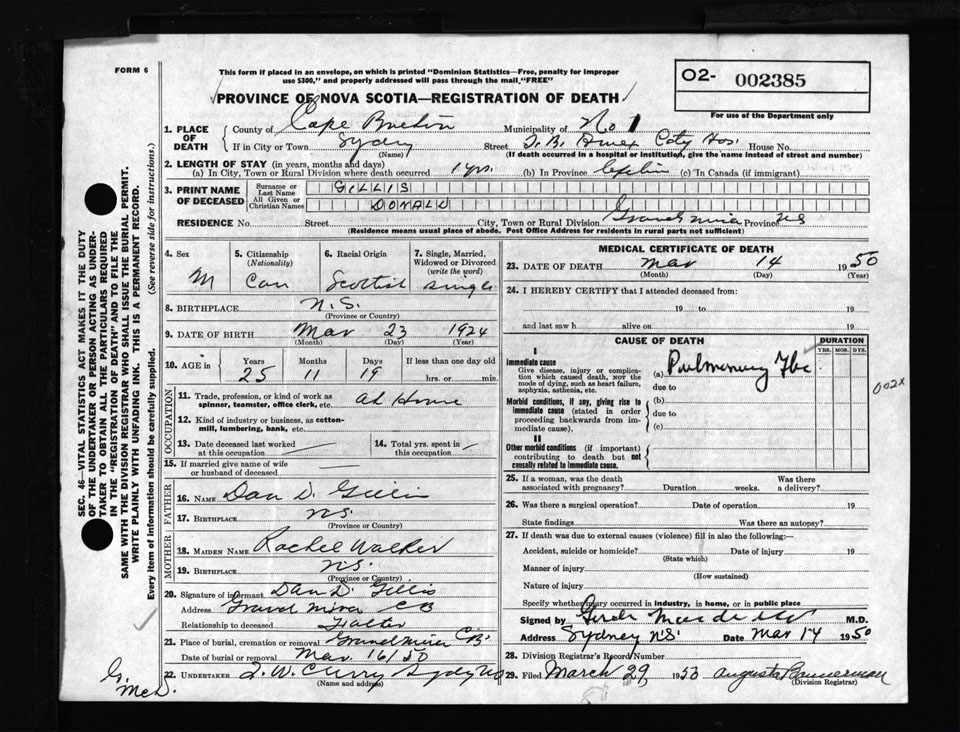 FORM 6
This form if placed in an envelope, on which is printed "Dominion Statistics—Free, penalty for improper
use $300," and properly addressed will pass through the mail, "FREE"
PROVINCE OF NOVA SCOTIA—REGISTRATION OF DEATH
O2- 002385
For use of the Department only
1. PLACE OF DEATH
County of Cape Breton Municipality of No 1
If in City or Town Sydney Street T.B. Annex City Hos. House No.
(Name) (If death occurred in a hospital or institution, give the name instead of street and number)
2. LENGTH OF STAY (in years, months and days)
(a) In City, Town or Rural Division where death occurred 1 yrs. (b) In Province (c) In Canada (if immigrant)
3. PRINT NAME OF DECEASED
Surname or Last Name GILLIS
All Given or Christian Names DONALD
RESIDENCE No. Street City, Town or Rural Division Grand Mira Province NS
(Residence means usual place of abode. Post Office Address for residents in rural parts not sufficient)
4. Sex 5. Citizenship (Nationality) 6. Racial Origin 7. Single, Married, Widowed or Divorced (write the word)
M Can Scottish single
8. BIRTHPLACE N.S.
(Province or Country)
9. DATE OF BIRTH Mar 23 1924
(Month) (Day) (Year)
10. AGE in Years Months Days If less than one day old
25 11 19 hrs. or min.
OCCUPATION
11. Trade, profession, or kind of work as
spinner, teamster, office clerk, etc. At Home
12. Kind of industry or business, as cotton-
mill, lumbering, bank, etc.
13. Date deceased last worked at this occupation
14. Total yrs. spent in this occupation
15. If married give name of wife
or husband of deceased
FATHER
16. NAME Dan D. Gillis
17. BIRTHPLACE NS.
(Province or Country)
MOTHER
18. MAIDEN NAME Rachel Walker
19. BIRTHPLACE NS.
(Province or Country)
20. Signature of informant Dan D. Gillis
Address Grand Mira CB
Relationship to deceased Father
21. Place of burial, cremation or removal Grand Mira CB
Date of burial or removal Mar. 16/50
22. UNDERTAKER T. W. Curry Sydney NS
(Name and address)
MEDICAL CERTIFICATE OF DEATH
23. DATE OF DEATH Mar 14 1950
(Month) (Day) (Year)
24. I HEREBY CERTIFY that I attended deceased from:
19 to 19
and last saw h alive on 19
CAUSE OF DEATH DURATION
YRS. MOS. DYS.
I
Immediate cause
Give disease, injury or complication
which caused death, NOT the
mode of dying, such as heart failure,
asphyxia, asthenia, etc.
(a) Pulmonary Tbc.
due to
002x
Morbid conditions, if any, giving rise to
immediate cause (stated in order
proceeding backwards from immediate
cause).
(b)
due to
(c)
II
Other morbid conditions (if important)
contributing to death but not
causally related to immediate cause.
25. If a woman, was the death
associated with pregnancy? Duration weeks. Was there a delivery?
26. Was there a surgical operation? Date of operation 19
State findings Was there an autopsy?
27. If death was due to external causes (violence) fill in also the following:—
Accident, suicide or homicide? Date of injury 19
(State which)
Manner of injury
(How sustained)
Nature of injury
Specify whether injury occurred in industry, in home, or in public place
Signed by M.D.
Address Sydney N.S. Date Mar 14 1950
28. Division Registrar's Record Number
29. Filed March 29 1950 Augusta Bannerman
(Division Registrar)
SEC. 46—VITAL STATISTICS ACT MAKES IT THE DUTY
OF THE UNDERTAKER OR PERSON ACTING AS UNDER-
TAKER TO OBTAIN ALL THE PARTICULARS REQUIRED
IN THE "REGISTRATION OF DEATH" AND TO FILE THE
SAME WITH THE DIVISION REGISTRAR WHO SHALL ISSUE THE BURIAL PERMIT.
WRITE PLAINLY WITH UNFADING INK. THIS IS A PERMANENT RECORD.
Every item of information should be carefully supplied. (See reverse side for instructions.)
G.
McD.